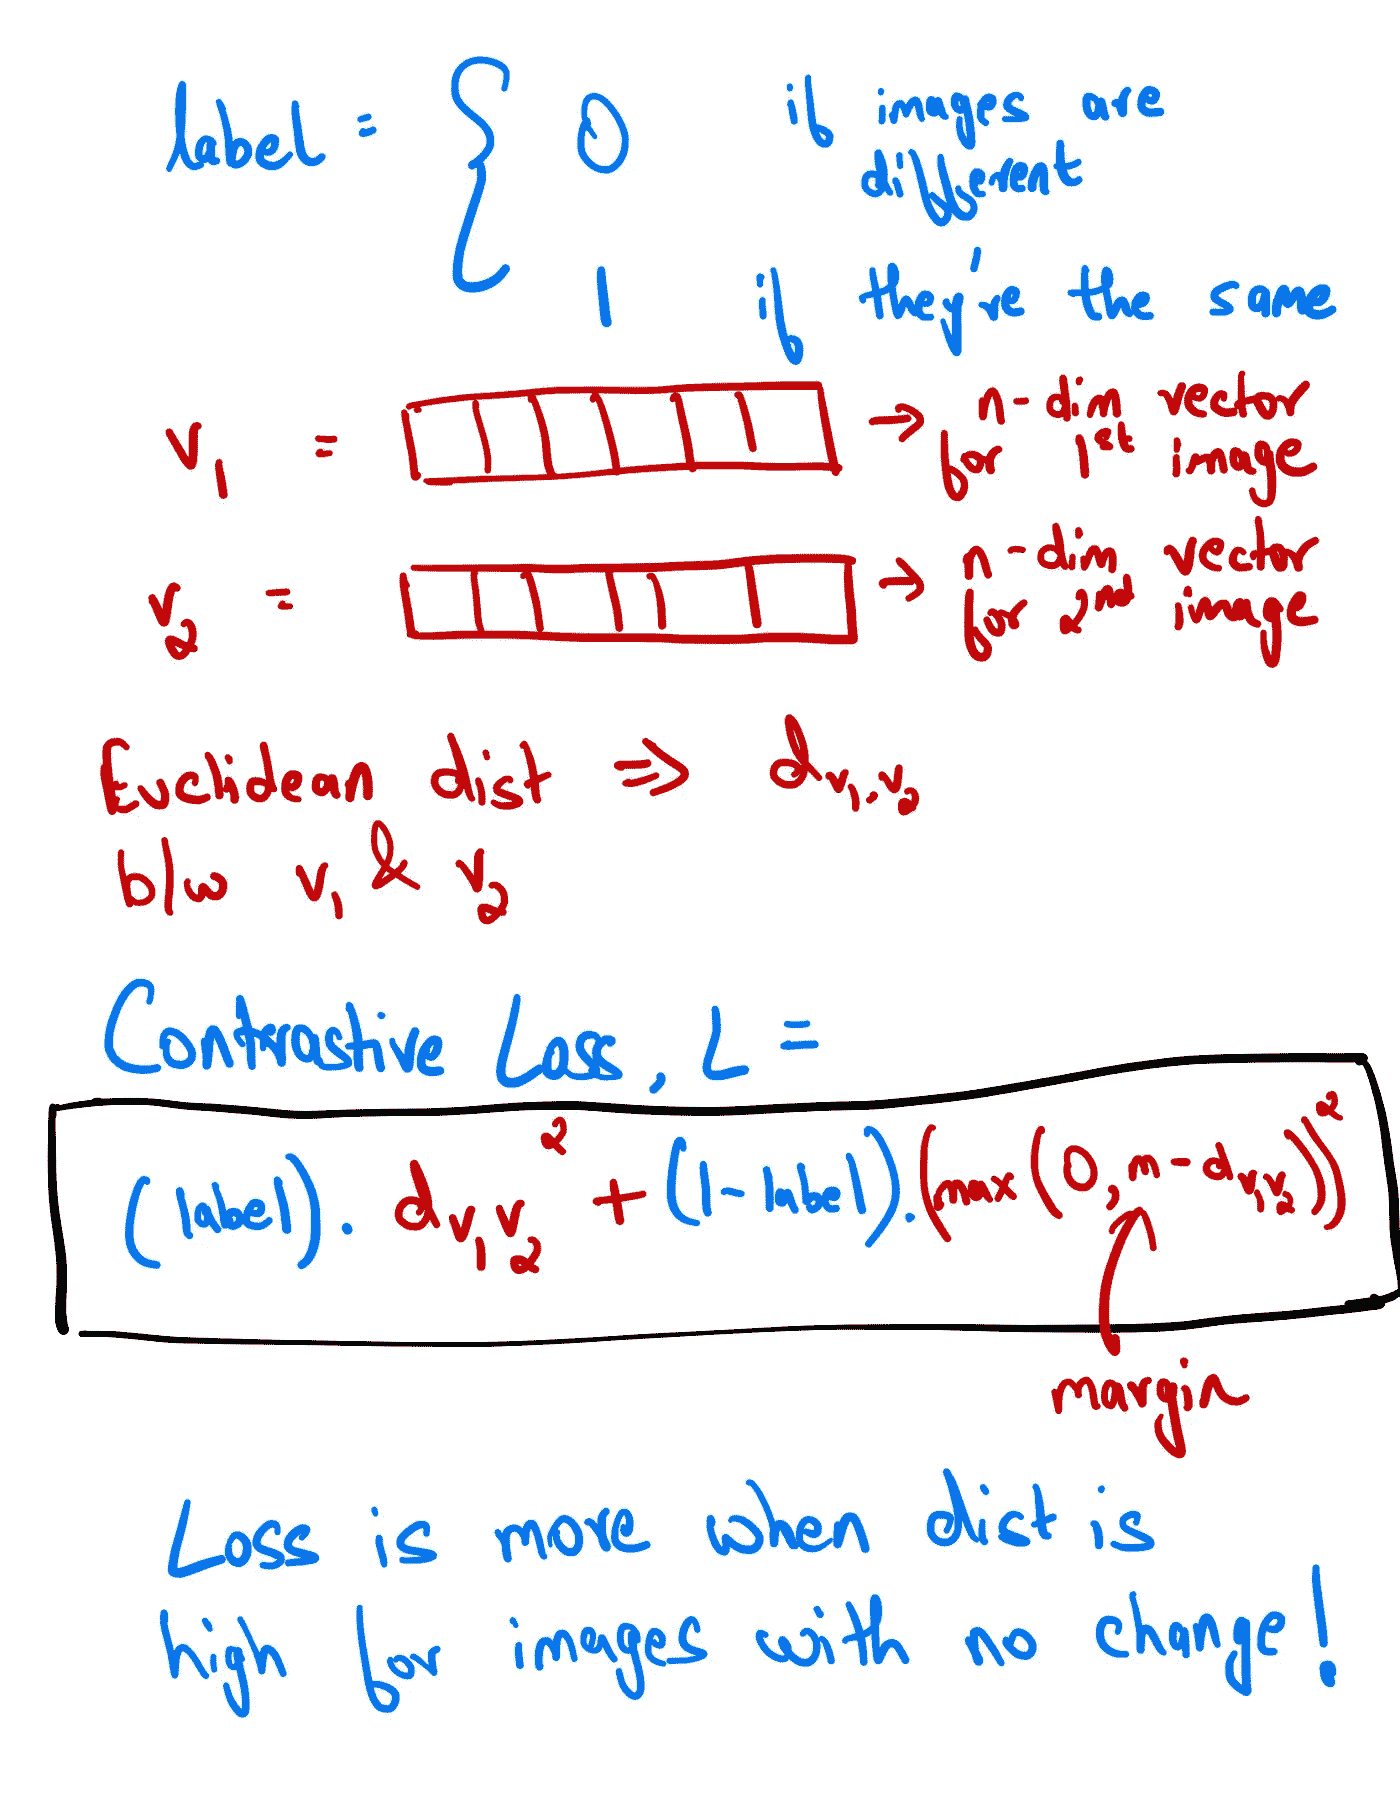 label = { 0 if images are
different
1 if they're the same
v₁ = → n-dim vector
for 1st image
v₂ = → n-dim vector
for 2nd image
Euclidean dist ⇒ d_v₁,v₂
b/w v₁ & v₂
Contrastive Loss, L =
(label) · d_v₁v₂² + (1 - label) · (max(0, m - d_v₁v₂))²
margin
Loss is more when dist is
high for images with no change!